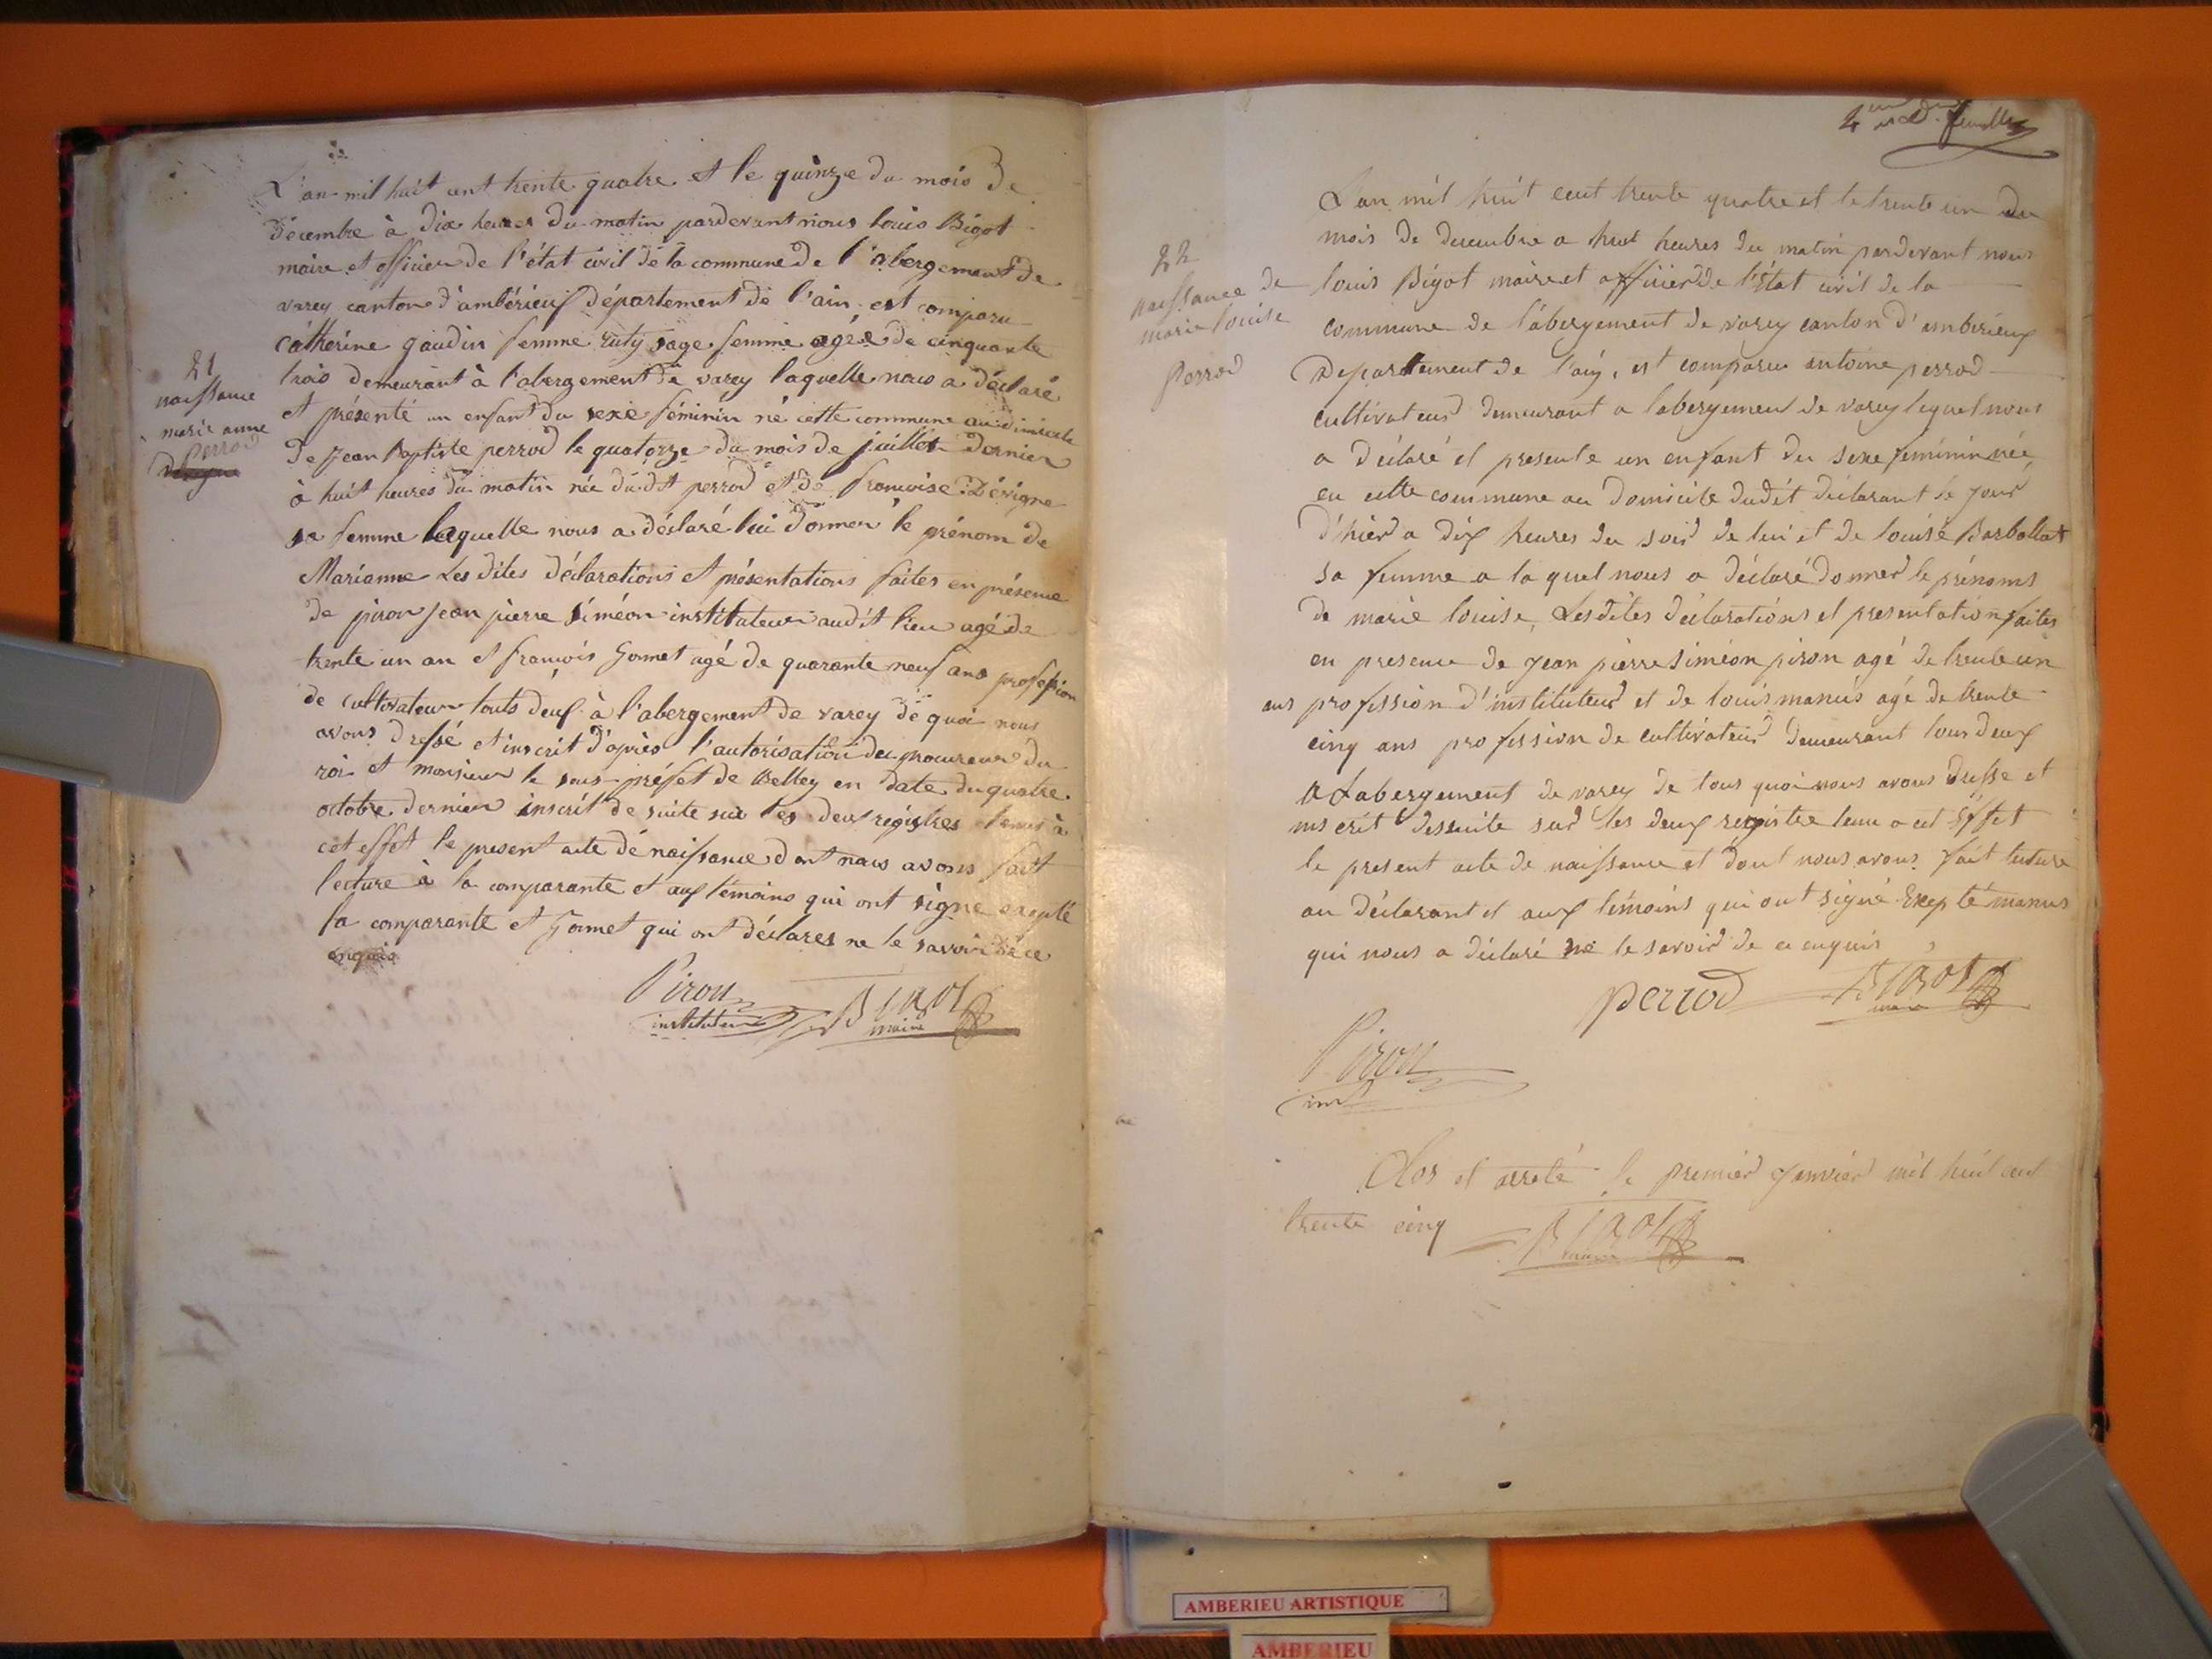 L'an mil huit cent trente quatre et le quinze du mois de
décembre à dix heures du matin pardevant nous louis Bigot
maire et officier de l'état civil de la commune de l'abergement de
varey canton d'ambérieux département de l'ain, est comparu
Catherine gaudin femme ruty sage femme agée de cinquante
trois demeurant à l'abergement de varey laquelle nous a déclaré
et présenté un enfant du sexe féminin né cette commune au dimicile
de Jean Baptiste perrod le quatorze du mois de juillet dernier
à huit heures du matin née du dit perrod et de francoise Dérigne
sa femme laquelle nous a déclaré lui donner le prénom de
Marianne Les dites déclarations et présentations faites en présence
de piron jean pierre siméon instituteur audit lieu agé de
trente un an et francois Gormet agé de quarante neuf ans profession
de cultivateur touts deux à l'abergement de varey de quoi nous
avons dressé et inscrit d'après l'autorisation du procureur du
roi et monsieur le sous-préfet de Belley en date du quatre
octobre dernier inscrit de suite sur les deux régistres tenus à
cet effet le present acte de naissance dont nous avons fait
lecture à la comparante et aux témoins qui ont signé excepté
la comparante et Gormet qui ont déclarés ne le savoir de ce
enquis
Piron
instituteur
Bigot
maire
21
naissance
marie anne
Perrod
L'an mil huit cent trente quatre et le trente un du
mois de decembre a huit heures du matin pardevant nous
louis Bigot maire et officier de l'État civil de la
commune de l'abergement de varey canton d'amberieux
Departement de l'ain, est comparu antoine perrod
cultivateur demeurant a labergement de varey lequel nous
a déclaré et presente un enfant du sexe féminin née
en cette commune au domicile dudit déclarant le jour
d'hier a dix heures du soir de lui et de louise Barbollat
sa femme a la quel nous a déclaré donner le prénoms
de marie louise, Lesdites déclarations et presentation faites
en presence de jean pierre siméon piron agé de trente un
ans profession d'instituteur et de louis manus agé de trente
cinq ans profession de cultivateur demeurant tous deux
a Labergement de varey de tous quoi nous avons dresse et
inscrit dessuite sur les deux registre tenu a cet Effet
le present acte de naissance et dont nous avons fait lecture
au déclarant et aux témoins qui ont signé Excepté manus
qui nous a déclaré ne le savoir de ce enquis
perrod
Bigot
maire
Piron
inst
Clos et arreté le premier janvier mil huit cent
trente cinq
Bigot
maire
22
naissance de
marie louise
Perrod
AMBERIEU ARTISTIQUE
AMBERIEU